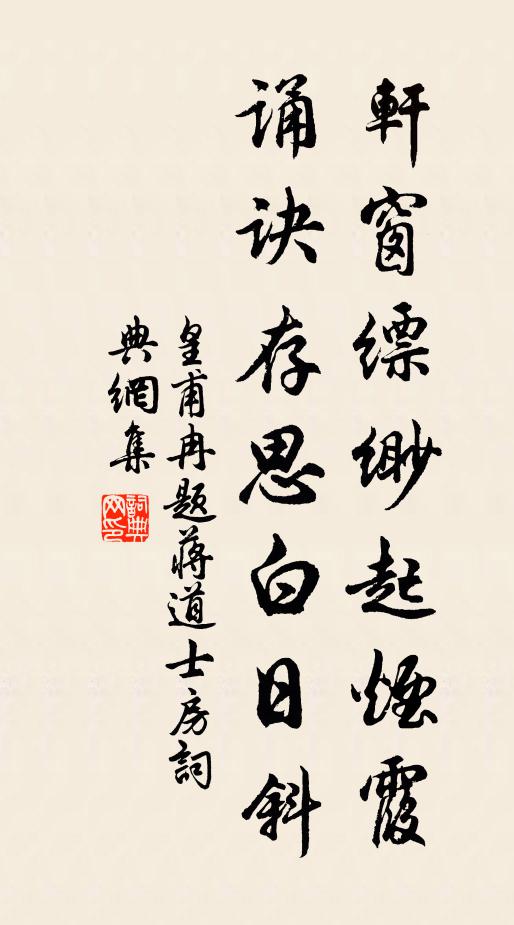 軒窗縹緲起煙霞
誦诀存思白日斜
皇甫冉題蔣道士房詞
典網集
詞典
网印